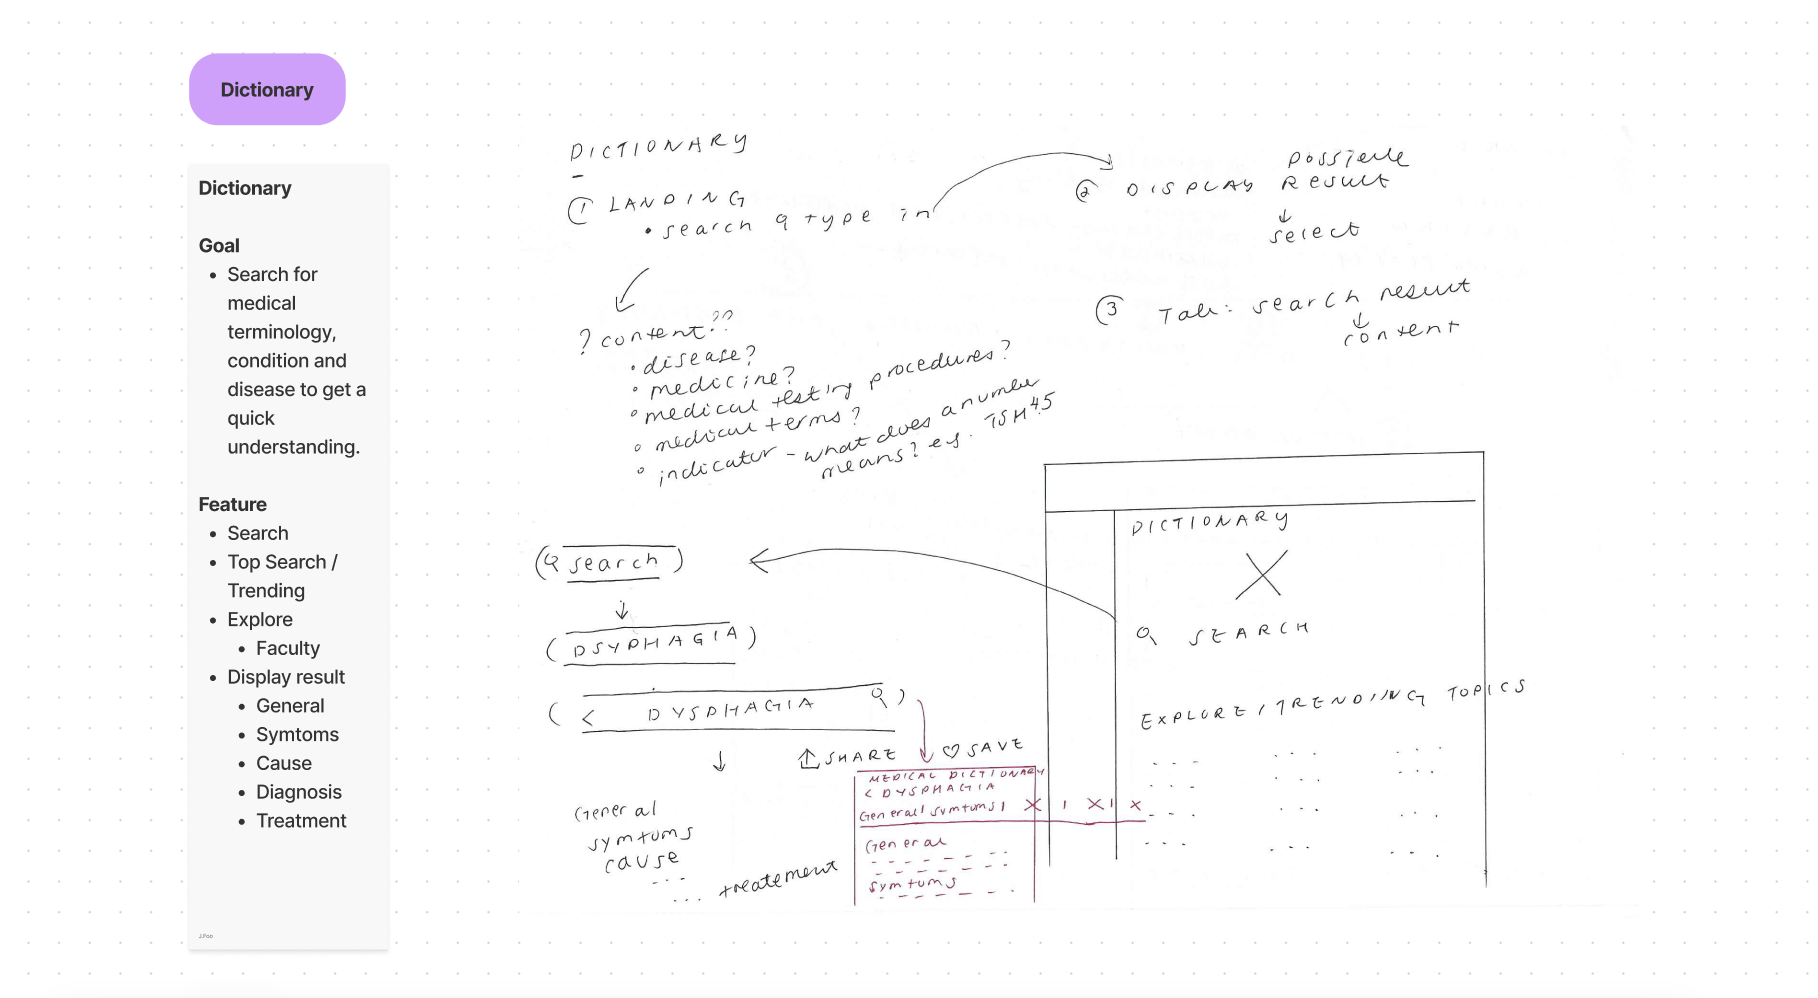 Dictionary
Dictionary
Goal
• Search for
medical
terminology,
condition and
disease to get a
quick
understanding.
Feature
• Search
• Top Search /
Trending
• Explore
• Faculty
• Display result
• General
• Symtoms
• Cause
• Diagnosis
• Treatment
J.Poo
DICTIONARY
① LANDING
• search type in
② DISPLAY POSSIBLE
RESULT
↓
select
③ Tab: search result
↓
content
? content??
• disease?
• medicine?
• medical testing procedures?
• medical terms?
• indicator - what does a number
means? eg. TSH 4.5
search
↓
DSYPHAGIA
< DYSPHAGIA
↓
SHARE
♡ SAVE
General
symtums
cause
...
... treatement
MEDICAL DICTIONARY
< DYSPHAGIA
General | symtums | X | X | X
General
symtums
DICTIONARY
SEARCH
EXPLORE / TRENDIING TOPICS